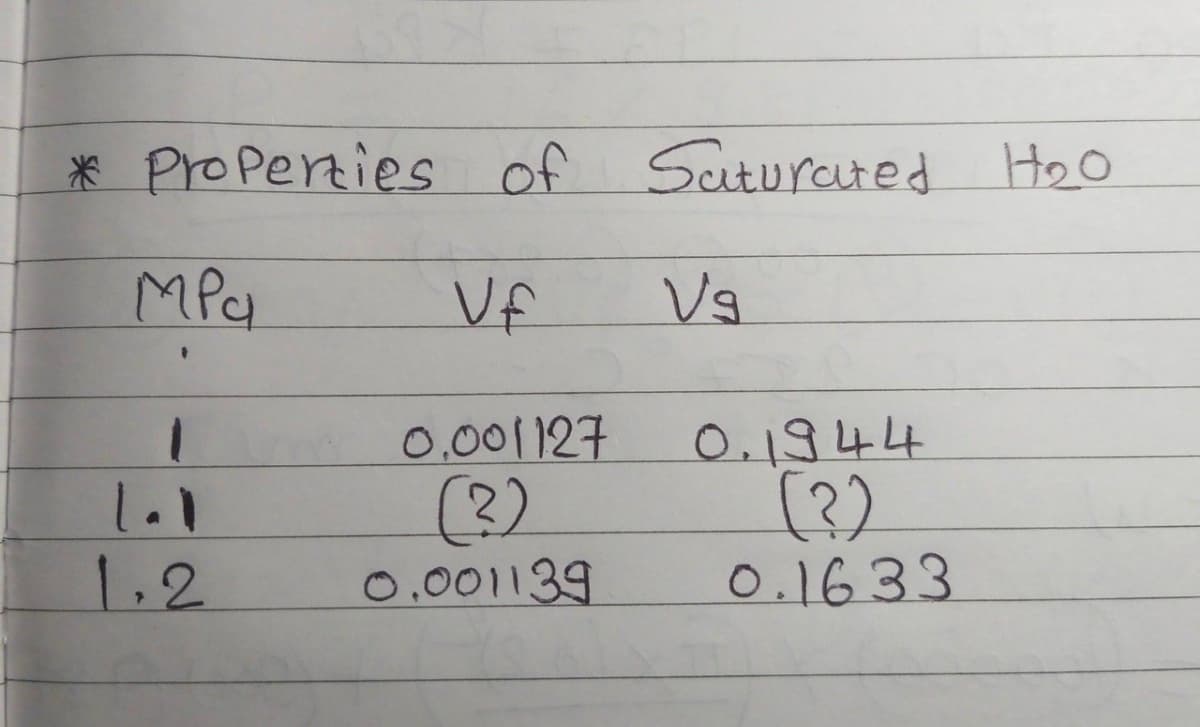 * Properties of Saturated H₂O
MPa Vf Vg
1 0.001127 0.1944
1.1 (?) (?)
1.2 0.001139 0.1633